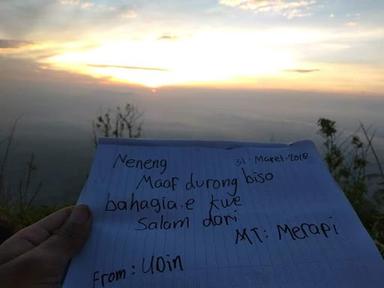 Meneng
31. Maret. 2018
Maaf durong biso
bahagia.e kwe
Salam dari
MT: Merapi
From: UDin